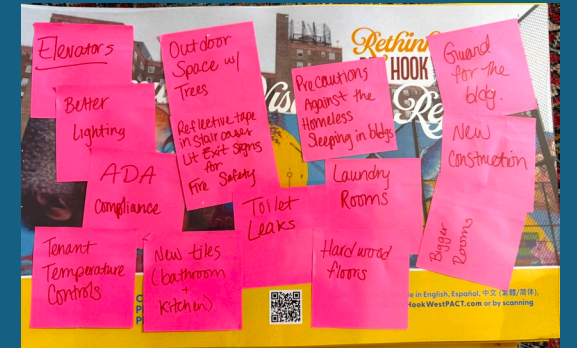 Elevators
Better
Lighting
ADA
Compliance
Tenant
Temperature
Controls
Outdoor
Space w/
Trees
Reflective tape
in staircases
Lit Exit Signs
for
Fire Safety
New tiles
(bathroom
+
Kitchen)
Toilet
Leaks
Precautions
Against the
Homeless
Sleeping in bldgs
Laundry
Rooms
Hardwood
floors
Guard
for the
bldg.
New
Construction
Bigger
Rooms
Rethink
HOOK
Re
e in English, Español, 中文 (繁體/简体),
HookWestPACT.com or by scanning